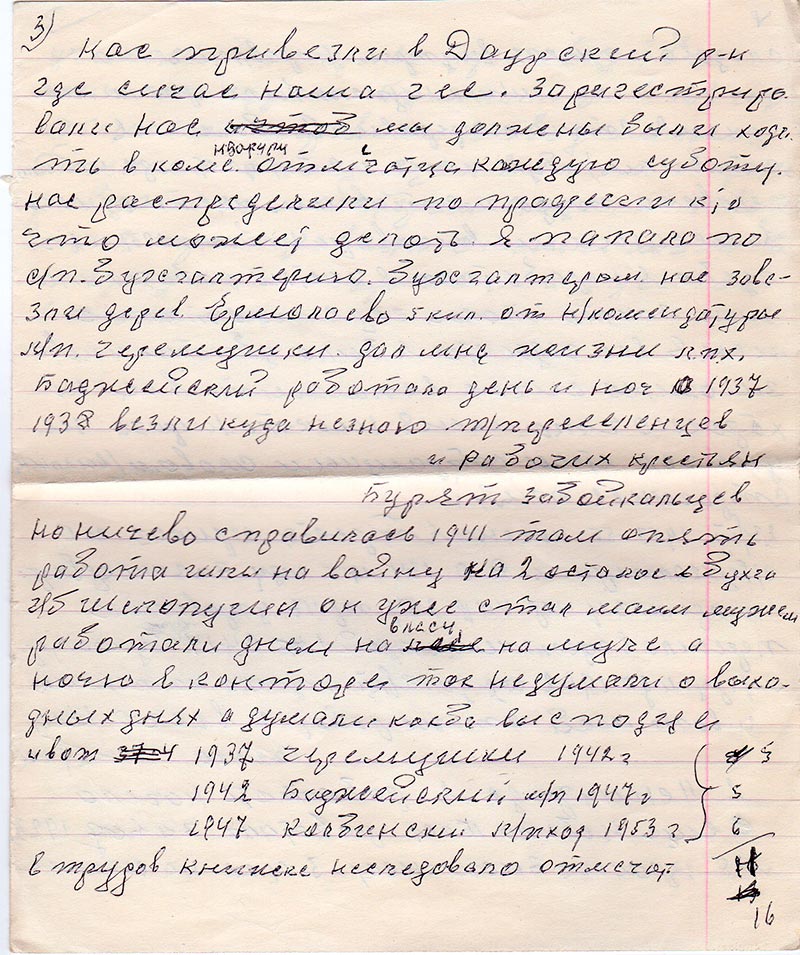 3)
нас привезли в Даурский р-н
где сичас наша гес. Заригестриро
вали нас мы должены были ходи
ть в коме. отмичатца каждую суботу.
нас распределили по прадессии кто
что может делать. Я папала по
с/п. Бухгалтерию. Бухгалтером нас заве-
зли дерев. Ермолаево 5 кил. от Н/комендатуры
л/п. Черемушки. дал мне жизни л.п.х.
Баджейский работала день и ноч 1937
1938 везли куда незнаю т/переселенцев
и рабочих крестьян
Бурят Забойкальцев
но ничево справилась 1941 там опять
работа или на войну на 2 осталос в бухга
он уже стал маим мужем
работали днем на
власу
на муче а
ночю в конторе так недумали о выхо-
дных днях а думали кокба высподце
и вот 1937 Черемушки 1942 г 5
1942 Баджейский л/п 1947 г 5
1947 Колбинский л/пход 1953 г 6
в трудов книжке неследовало отмечат
16